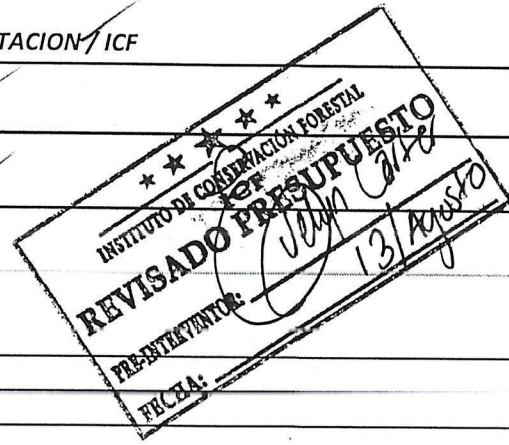 TACION / ICF
INSTITUTO DE CONSERVACIÓN FORESTAL
ICF
REVISADO PRESUPUESTO
PRE-INTERVENTOR:
FECHA: 13/Agosto